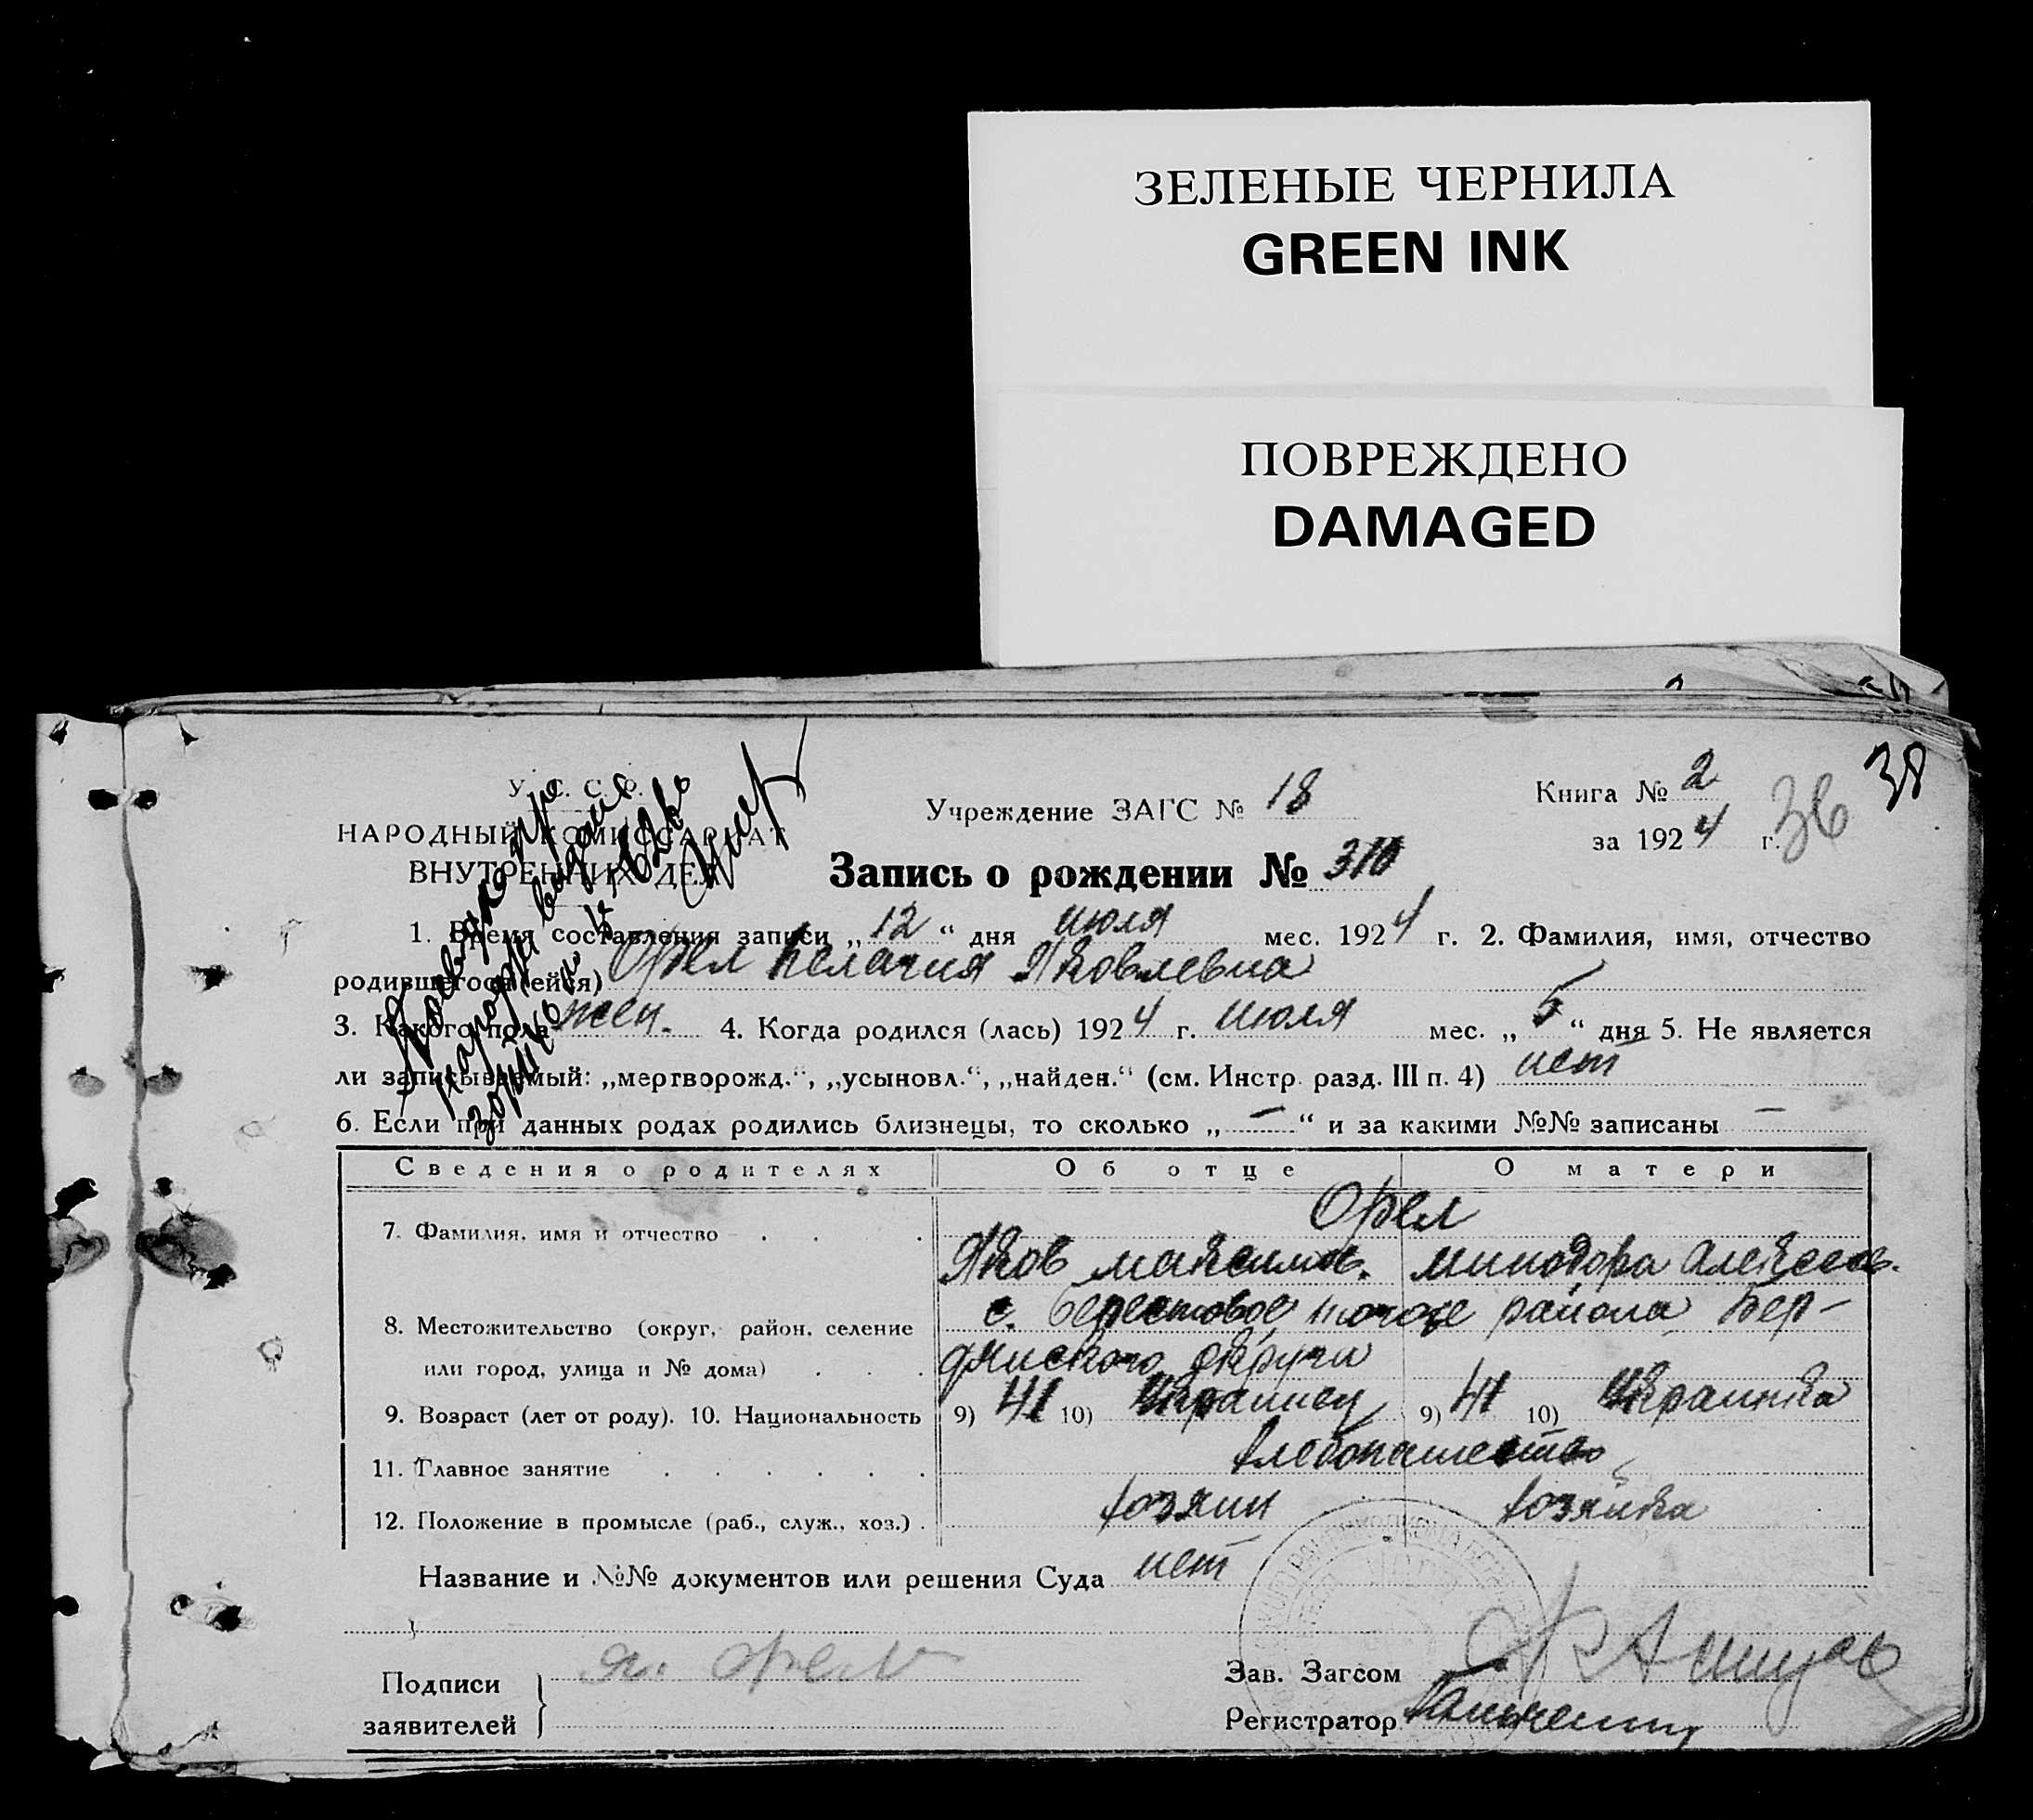 ЗЕЛЕНЫЕ ЧЕРНИЛА
GREEN INK
ПОВРЕЖДЕНО
DAMAGED
38
У. С. С. Р.
НАРОДНЫЙ КОМИССАРИАТ
ВНУТРЕННИХ ДЕЛ
Учреждение ЗАГС № 18
Книга № 2
за 1924 г.
36
Запись о рождении № 310
1. Время составления записи „12“ дня июля мес. 1924 г. 2. Фамилия, имя, отчество
родившегося (ейся) Орел Пелагия Яковлевна
3. Какого пола жен. 4. Когда родился (лась) 1924 г. июля мес. „5“ дня 5. Не является
ли записываемый: „мертворожд.“, „усыновл.“, „найден.“ (см. Инстр. разд. III п. 4) нет
6. Если при данных родах родились близнецы, то сколько „—“ и за какими №№ записаны —
Сведения о родителях Об отце О матери
Орел
7. Фамилия, имя и отчество . . .
Яков Максимов. Минодора Алексеев.
с. Берестовое того же района Бер-
8. Местожительство (округ, район, селение
или город, улица и № дома) . . . дянского округи
9. Возраст (лет от роду). 10. Национальность 9) 41 10) Украинец 9) 41 10) Украинка
11. Главное занятие . . . . . . хлебопашество
12. Положение в промысле (раб., служ., хоз.) . хозяин хозяйка
Название и №№ документов или решения Суда нет
Подписи
заявителей
Як. Орел
Зав. Загсом
Регистратор